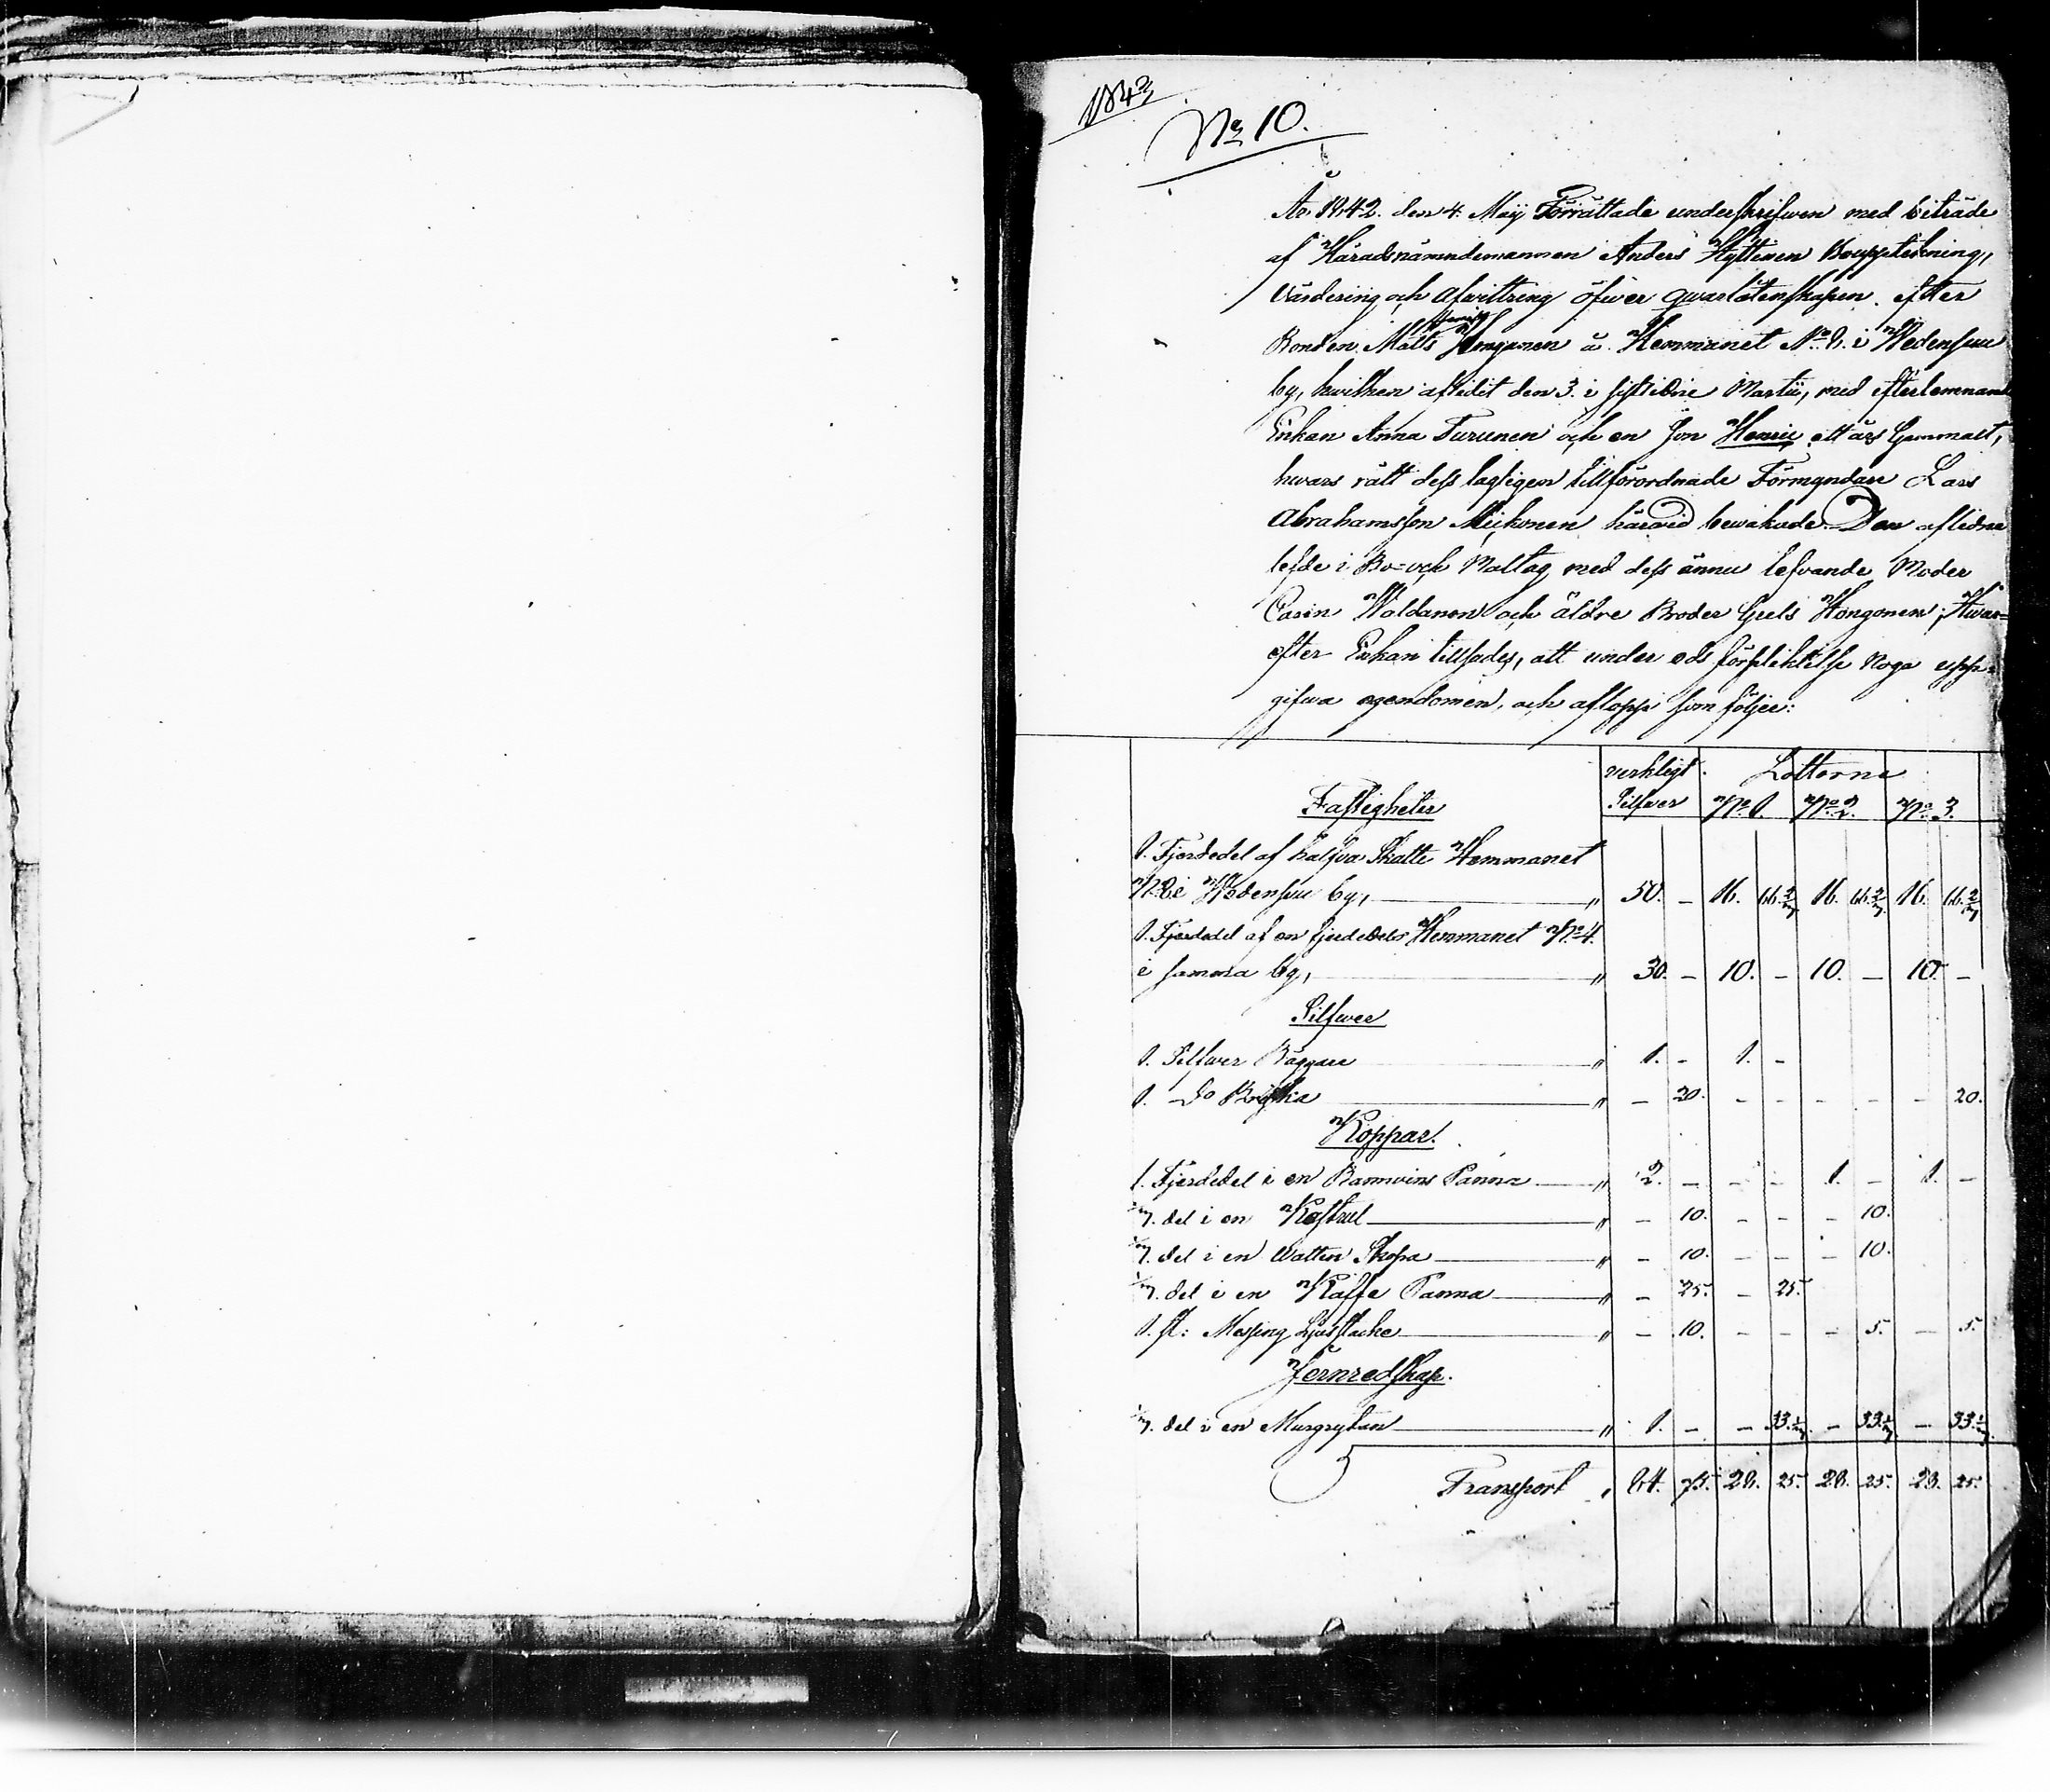 1842
No 10.
År 1842. den 4. Maij Förrättade underskrifwen med biträde
af Häradsnämndemannen Anders Hyttinen Bouppteckning,
Värdering och afwittring öfwer qwarlåtenskapen efter
Bonden Matts Hongonen å Hemmanet No 8. i Wedensuu
by, hwilken aflidit den 3. i sistledne Martii, med efterlemnande
Enkan Anna Turunen och en Son Henric ett års gammalt,
hwars rätt dess lagligen tillförordnade Förmyndare Lars
Abrahamsson Miikonen härwid bewakade. Den aflidne
lefde i Bo- och Matlag med dess ännu lefvande Moder
Carin Woldanen och äldre Broder Grels Hongonen; Hwar-
efter Enkan tillsades, att under eds förpliktelse noga upp-
gifwa egendomen, och aflopp som följer:
verkligt Lotterne
Fastigheter Silfwer No 1. No 2. No 3.
1. Fjerdedel af halfva Skatte Hemmanet
No 8 i Wedensuu by, " 50. - 16. 66 2/3 16. 66 2/3 16. 66 2/3
1. Fjerdedel af en fjerdedels Hemmanet No 4.
i samma by, " 30. - 10. - 10. - 10. -
Silfwer
1. Silfwer Bäggare " 1. - 1. -
1. Do " - 20. - - - - - 20.
Koppar.
1. Fjerdedel i en Brännvins Panna " 2. - - - 1. - 1. -
1/3. del i en Kastrul " - 10. - - - 10.
1/3. del i en Watten Skopa " - 10. - - - 10.
1/3. del i en Kaffe Panna " - 25. - 25.
1. st: Messing Ljusstake " - 10. - - - 5. - 5.
Jernredskap.
1/3. del i en Murgrytan " 1. - - 33 1/3 - 33 1/3 - 33 1/3
Transport " 84. 75. 28. 25. 28. 25. 28. 25.